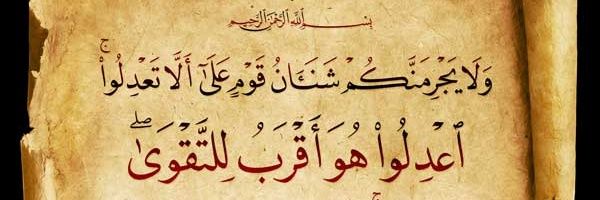 بِسْمِ اللَّهِ الرَّحْمَٰنِ الرَّحِيمِ
وَلَا يَجْرِمَنَّكُمْ شَنَـَٔانُ قَوْمٍ عَلَىٰٓ أَلَّا تَعْدِلُوا۟ ۚ
ٱعْدِلُوا۟ هُوَ أَقْرَبُ لِلتَّقْوَىٰ ۖ